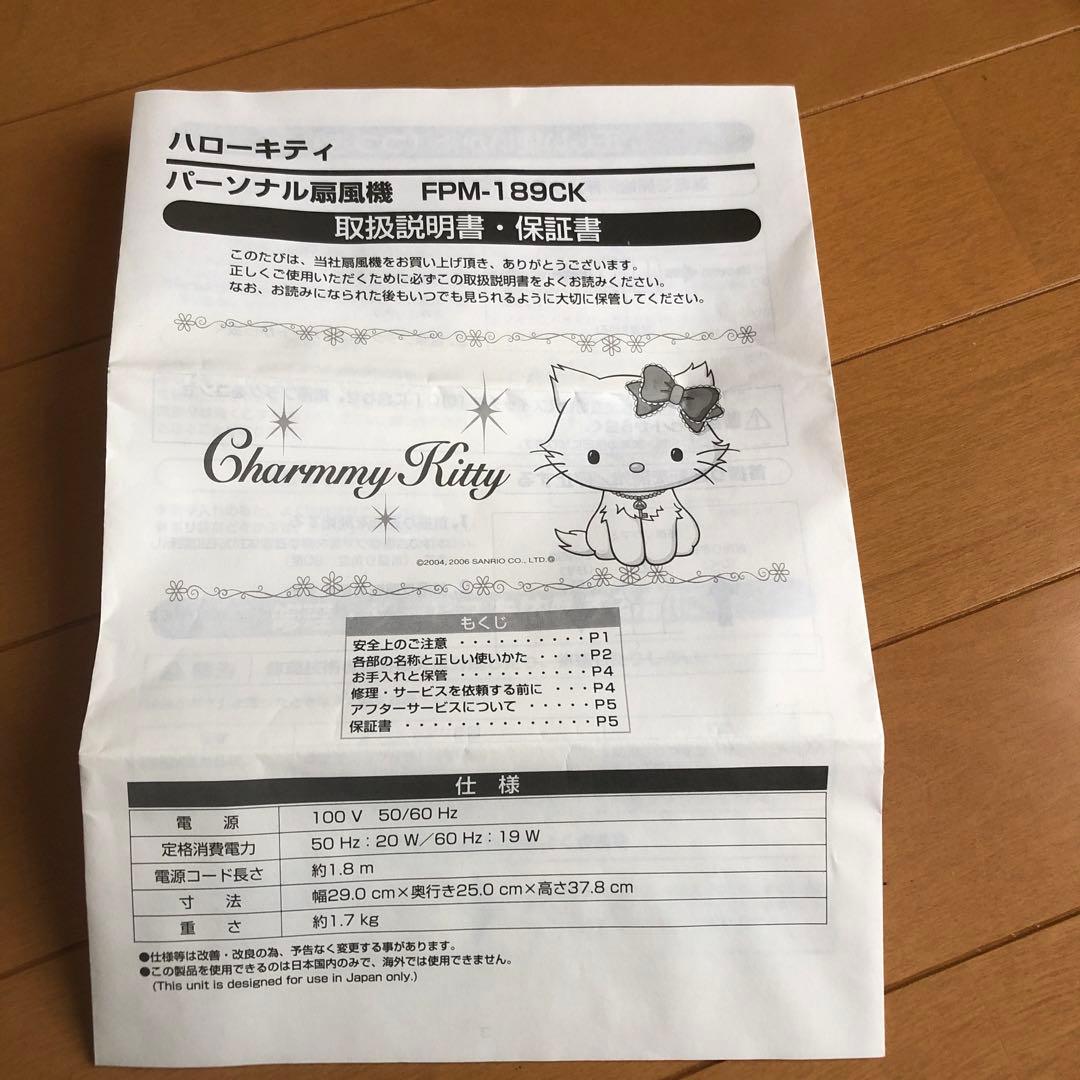 ハローキティ
パーソナル扇風機 FPM-189CK
取扱説明書・保証書
このたびは、当社扇風機をお買い上げ頂き、ありがとうございます。
正しくご使用いただくために必ずこの取扱説明書をよくお読みください。
なお、お読みになられた後もいつでも見られるように大切に保管してください。
Charmmy Kitty
©2004, 2006 SANRIO CO., LTD.
もくじ
安全上のご注意 ・・・・・・・・・・ P1
各部の名称と正しい使いかた ・・・・ P2
お手入れと保管 ・・・・・・・・・・ P4
修理・サービスを依頼する前に ・・・ P4
アフターサービスについて ・・・・・ P5
保証書 ・・・・・・・・・・・・・・ P5
仕 様
電 源 100 V 50/60 Hz
定格消費電力 50 Hz：20 W／60 Hz：19 W
電源コード長さ 約1.8 m
寸 法 幅29.0 cm×奥行き25.0 cm×高さ37.8 cm
重 さ 約1.7 kg
●仕様等は改善・改良の為、予告なく変更する事があります。
●この製品を使用できるのは日本国内のみで、海外では使用できません。
(This unit is designed for use in Japan only.)